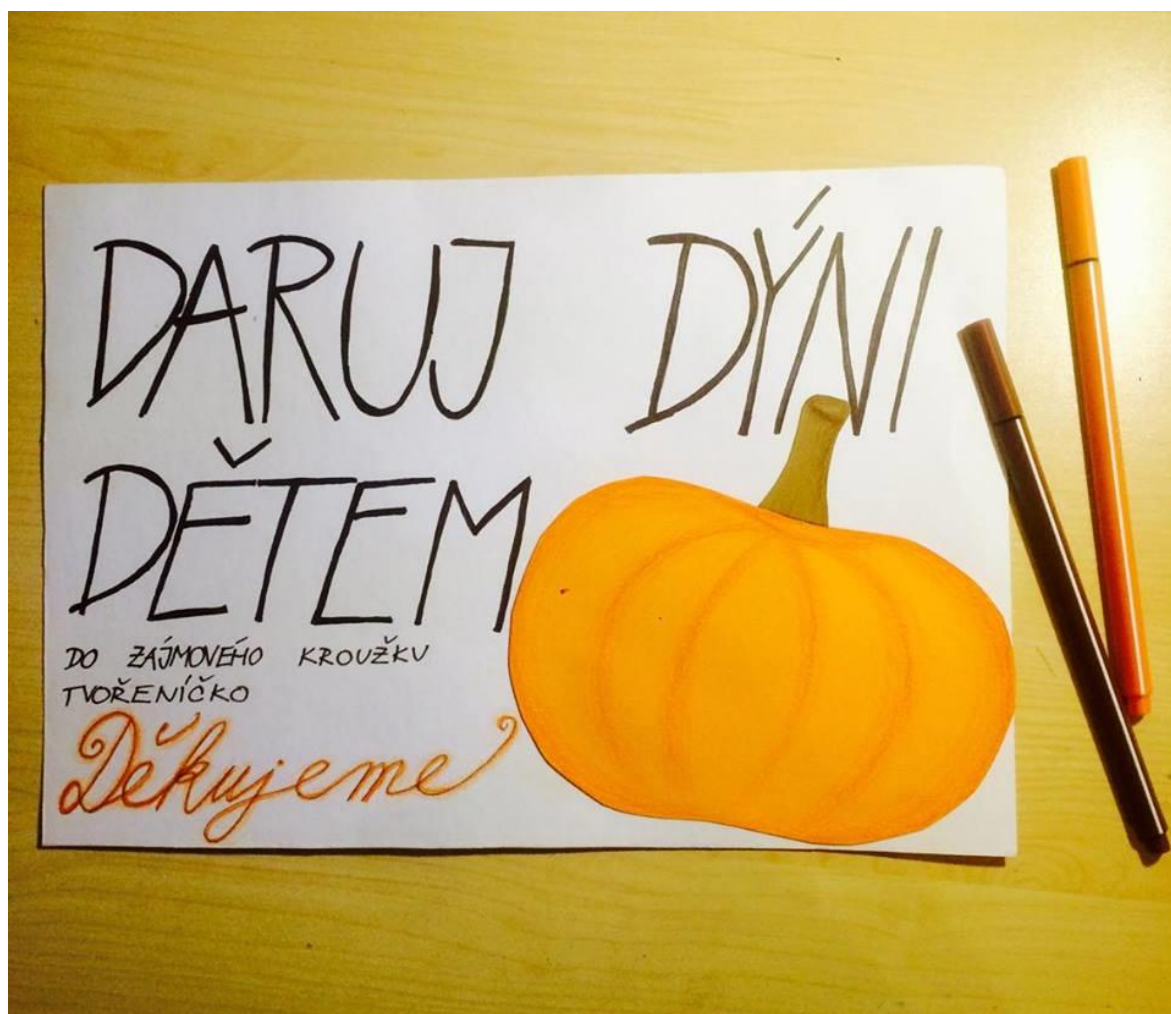 DARUJ DÝNI
DĚTEM
DO ZÁJMOVÉHO KROUŽKU
TVOŘENÍČKO
Děkujeme